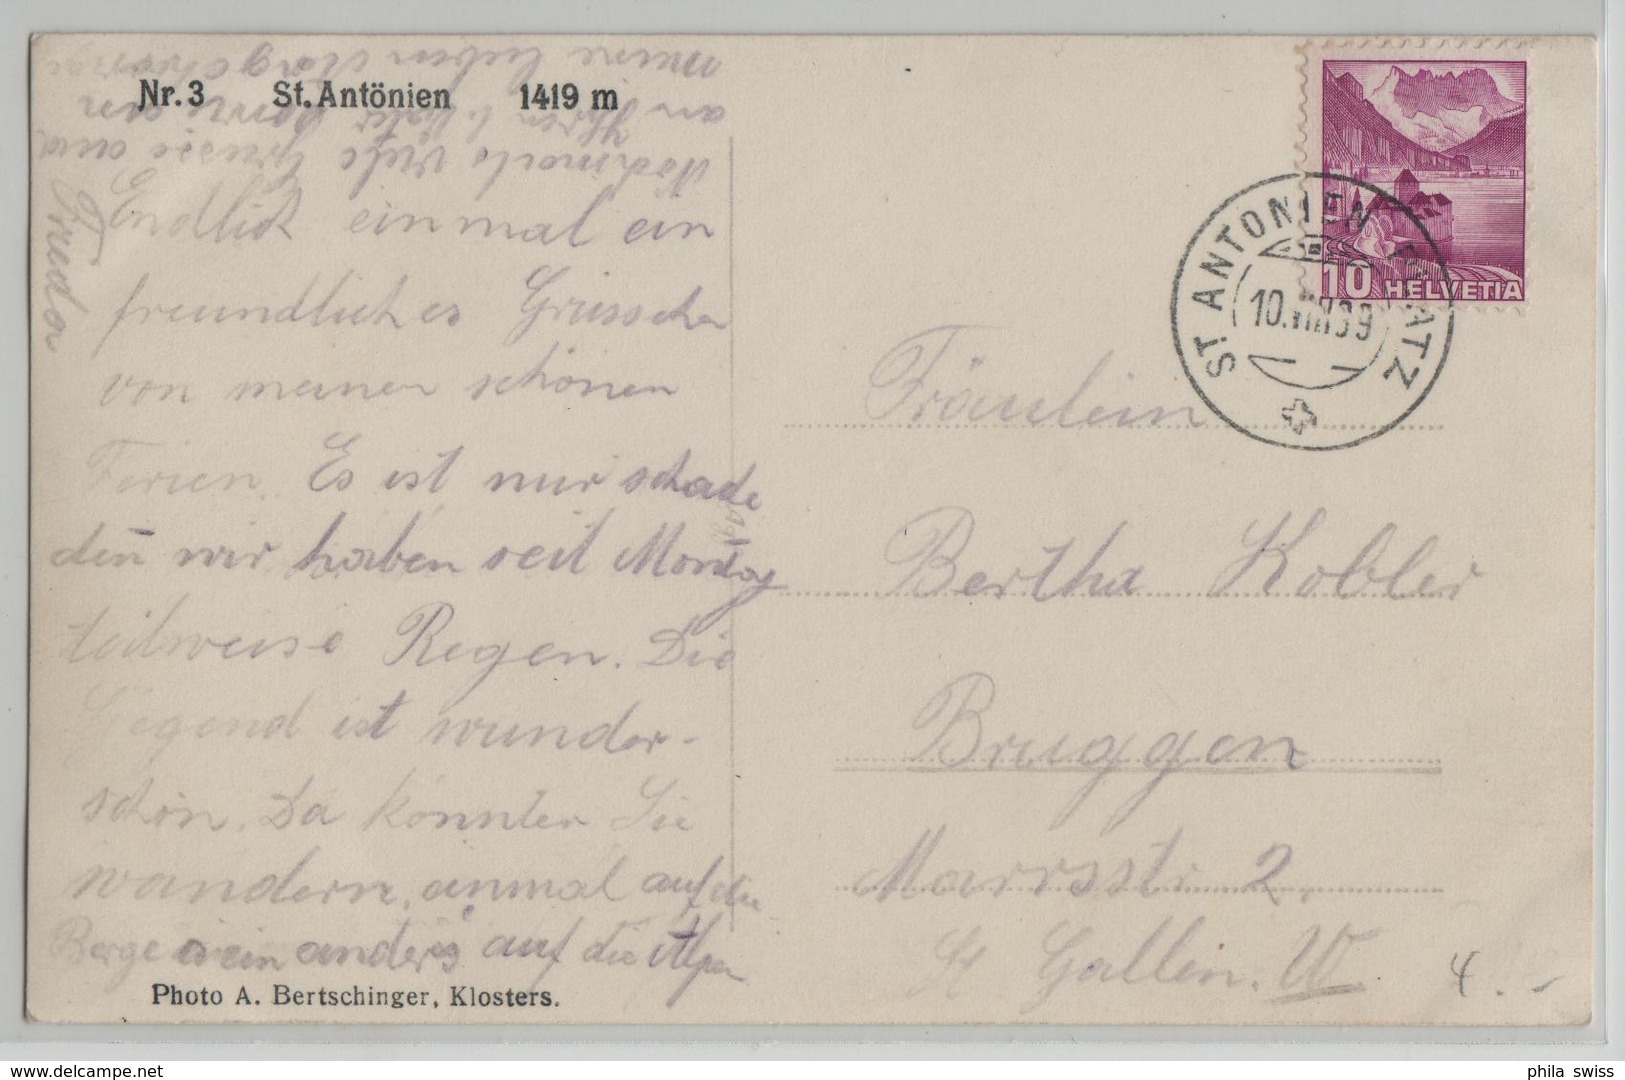 Nr. 3 St. Antönien 1419 m
Endlich einmal ein
freundliches Grüsschen
von meinen schönen
Ferien. Es ist nur schade
den̄ wir haben seit Montag
teilweise Regen. Die
Gegend ist wunder-
schön. Da könnten Sie
wandern, einmal auf die
Berge ein anders auf die Alpen
Nochmals viele Grüsse auch
an Ihren b. Vater sowie an
meine lieben Angehörige
Freda
Photo A. Bertschinger, Klosters.
10 HELVETIA
ST. ANTONIEN PLATZ
10.VIII.39
Fräulein
Bertha Kobler
Bruggen
Marrsstr 2.
St Gallen. W
4.-
phila swiss
www.delcampe.net